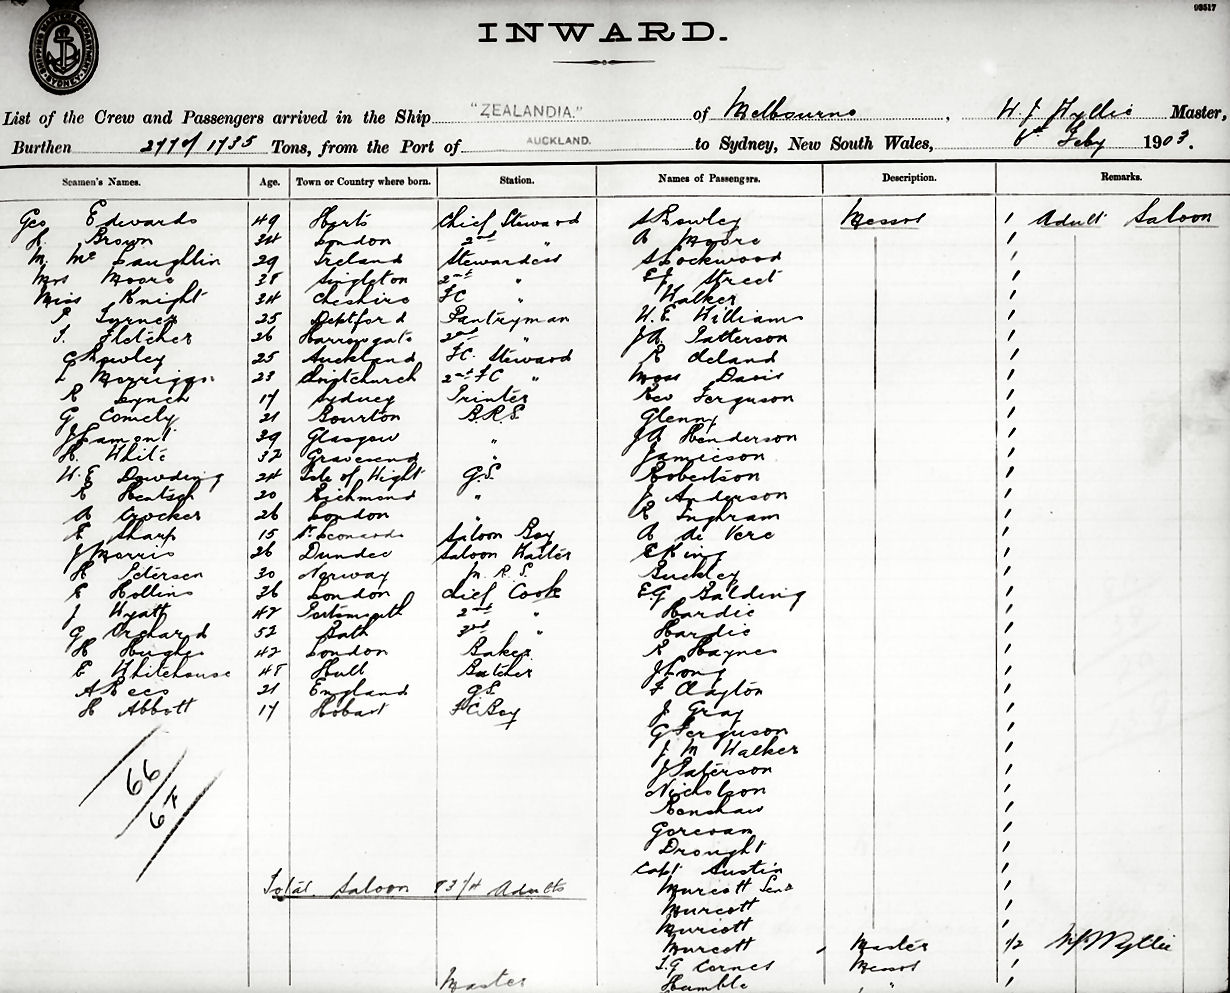 98517
SHIPPING MASTERS DEPARTMENT SYDNEY
INWARD.
List of the Crew and Passengers arrived in the Ship "ZEALANDIA." of Melbourne, W. J. Wyllie Master,
Burthen Tons, from the Port of AUCKLAND. to Sydney, New South Wales, Feby 1903.
Seamen's Names. Age. Town or Country where born. Station. Names of Passengers. Description. Remarks.
Geo Edwards 49 Herts Chief Steward S Rowley Messrs 1 Adult Saloon
H. Brown 24 London 2nd " A Moore 1
M. McLaughlin 29 Ireland Stewardess S Lockwood 1
Mrs Moore 38 Singleton 2nd " Street 1
Miss Knight 34 Cheshire FC Walker 1
25 Deptford Pantryman W. E. Williams 1
Fletcher 26 Harrogate 2nd " JA Patterson 1
Rowley 25 Auckland F.C. Steward Leland 1
23 2nd FC " Moss Davis 1
R Lynch 17 Sydney Printer Rev Ferguson 1
G Comely 21 Bourton B.R.S. Glenny 1
J Lamont 39 Glasgow " JA Henderson 1
H. White 32 Gravesend " Jamieson 1
W. E. Dowding 24 Isle of Wight G.S. Robertson 1
Hentsch 20 Richmond " J Anderson 1
A Crocker 26 London " R Inghram 1
E Sharp 15 St Leonards Saloon Boy A de Vere 1
J Morris 26 Dundee Saloon Waiter E King 1
H Petersen 30 Norway M.R.S. Buckley 1
E Hollins 36 London Chief Cook E.G Balding 1
J Wyatt 42 Portsmouth 2nd " Hardie 1
G Orchard 52 Bath 3rd " Hardie 1
H Hughes 42 London Baker R Haynes 1
E Whitehouse 48 Hull Butcher J Long 1
A Rees 21 England G.S. F Clayton 1
H Abbott 17 Hobart F.C. Boy J Gray 1
G Ferguson 1
J M Walker 1
66 J Paterson 1
Nicholson 1
Renshaw 1
Gorevan 1
Drought 1
Capt Austin 1
Total Saloon Adults Murcott Senr 1
Murcott 1
Murcott 1
Murcott Master 1/2 W J Wyllie
Cornes Messrs 1
Master Humble " 1